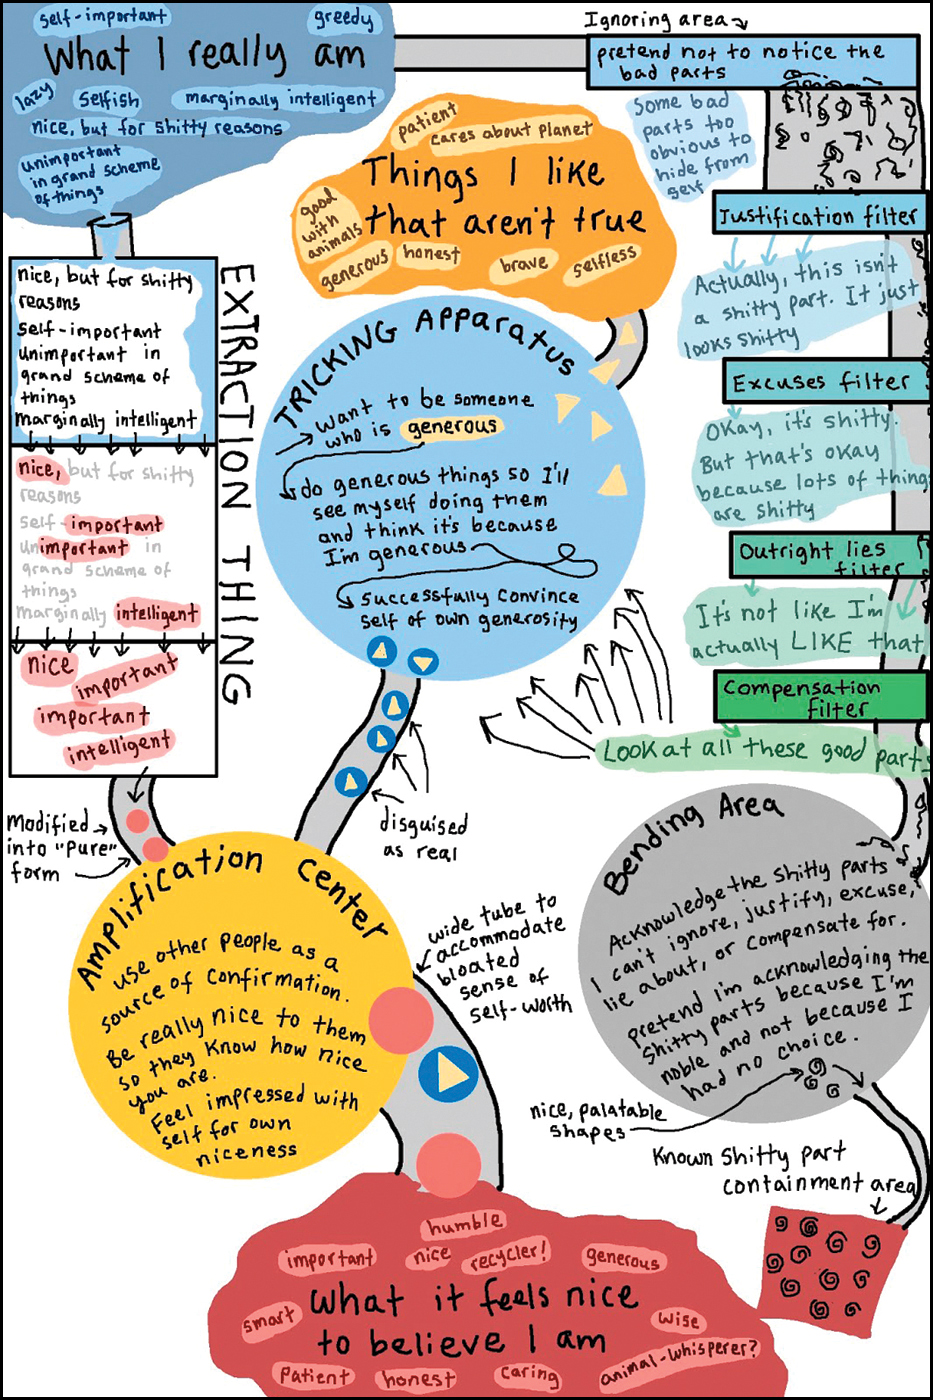 self-important
greedy
What I really am
lazy
selfish
marginally intelligent
nice, but for shitty reasons
unimportant
in grand scheme
of things
Ignoring area
pretend not to notice the
bad parts
Some bad
parts too
obvious to
hide from
self
patient
cares about planet
Things I like
that aren't true
good
with
animals
generous
honest
brave
selfless
Justification filter
Actually, this isn't
a shitty part. It just
looks shitty
Excuses filter
Okay, it's shitty.
But that's okay
because lots of things
are shitty
Outright lies
filter
It's not like I'm
actually LIKE that
Compensation
filter
Look at all these good parts
EXTRACTION THING
nice, but for shitty
reasons
self-important
unimportant in
grand scheme of
things
marginally intelligent
nice, but for shitty
reasons
self-important
unimportant in
grand scheme of
things
marginally intelligent
nice
important
important
intelligent
Modified
into "pure"
form
TRICKING APParatus
want to be someone
who is generous
do generous things so I'll
see myself doing them
and think it's because
I'm generous
successfully convince
self of own generosity
disguised
as real
Amplification Center
use other people as a
source of confirmation.
Be really nice to them
so they know how nice
you are.
Feel impressed with
self for own
niceness
wide tube to
accommodate
bloated
sense of
self-worth
Bending Area
Acknowledge the shitty parts
I can't ignore, justify, excuse,
lie about, or compensate for.
pretend I'm acknowledging the
shitty parts because I'm
noble and not because I
had no choice.
nice, palatable
shapes
Known shitty part
containment area
humble
important
nice
recycler!
generous
What it feels nice
to believe I am
smart
wise
patient
honest
caring
animal-whisperer?